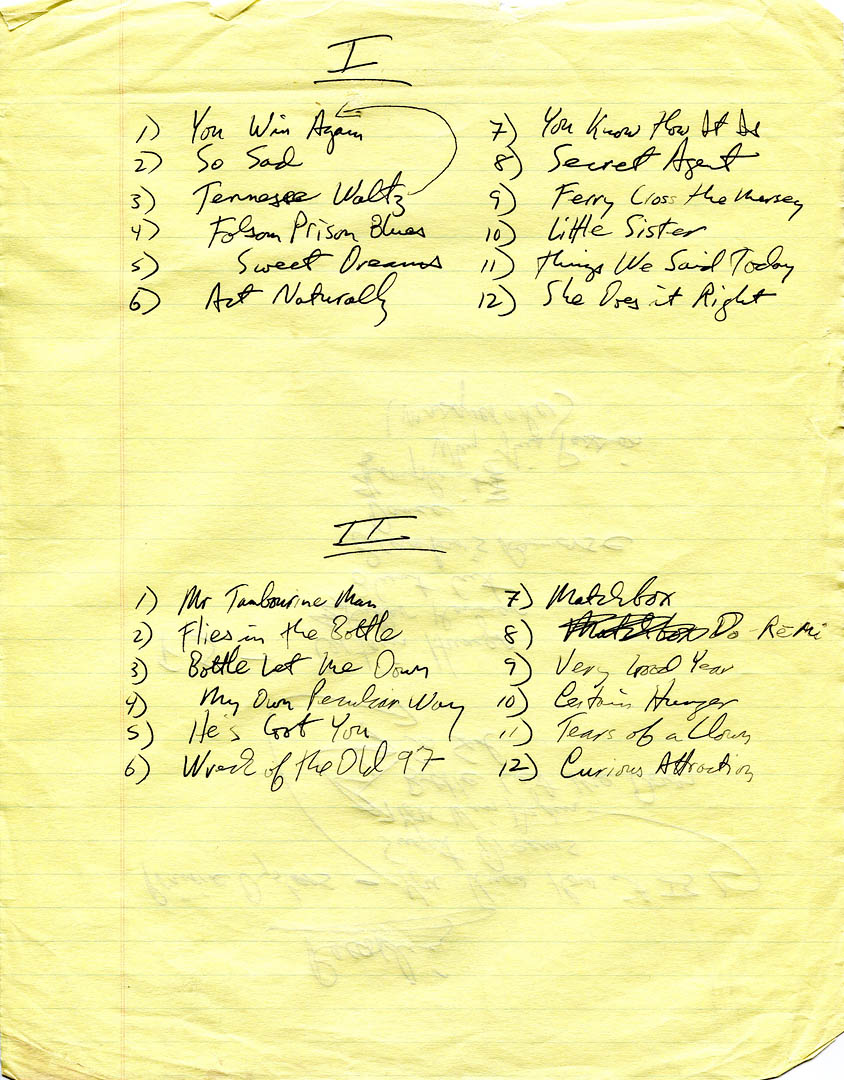 I
1) You Win Again
2) So Sad
3) Tennessee Waltz
4) Folsom Prison Blues
5) Sweet Dreams
6) Act Naturally
7) You Know How It Is
8) Secret Agent
9) Ferry Cross the Mersey
10) Little Sister
11) Things We Said Today
12) She Does it Right
II
1) Mr Tambourine Man
2) Flies in the Bottle
3) Bottle Let Me Down
4) My Own Peculiar Way
5) He's Got You
6) Wreck of the Old 97
7) Matchbox
8) Matchbox Do-Re Mi
9) Very Good Year
10) Certain Hunger
11) Tears of a Clown
12) Curious Attraction